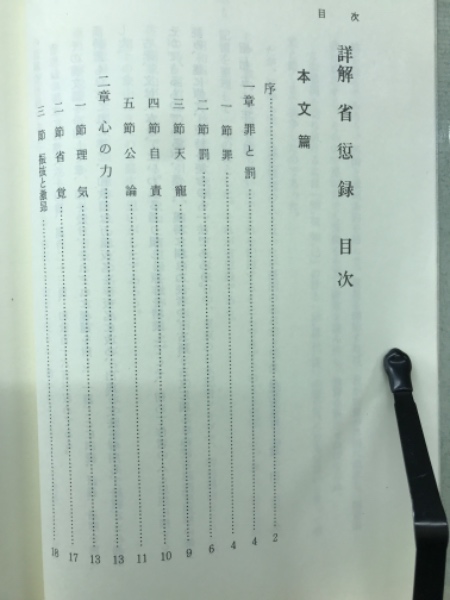 目次
詳解 省諐録 目次
本文篇
序……2
一章 罪と罰……4
一節 罪……4
二節 罰……6
三節 天寵……9
四節 自責……10
五節 公論……11
二章 心の力……13
一節 理気……13
二節 省覚……17
三節 振抜と激昂……18